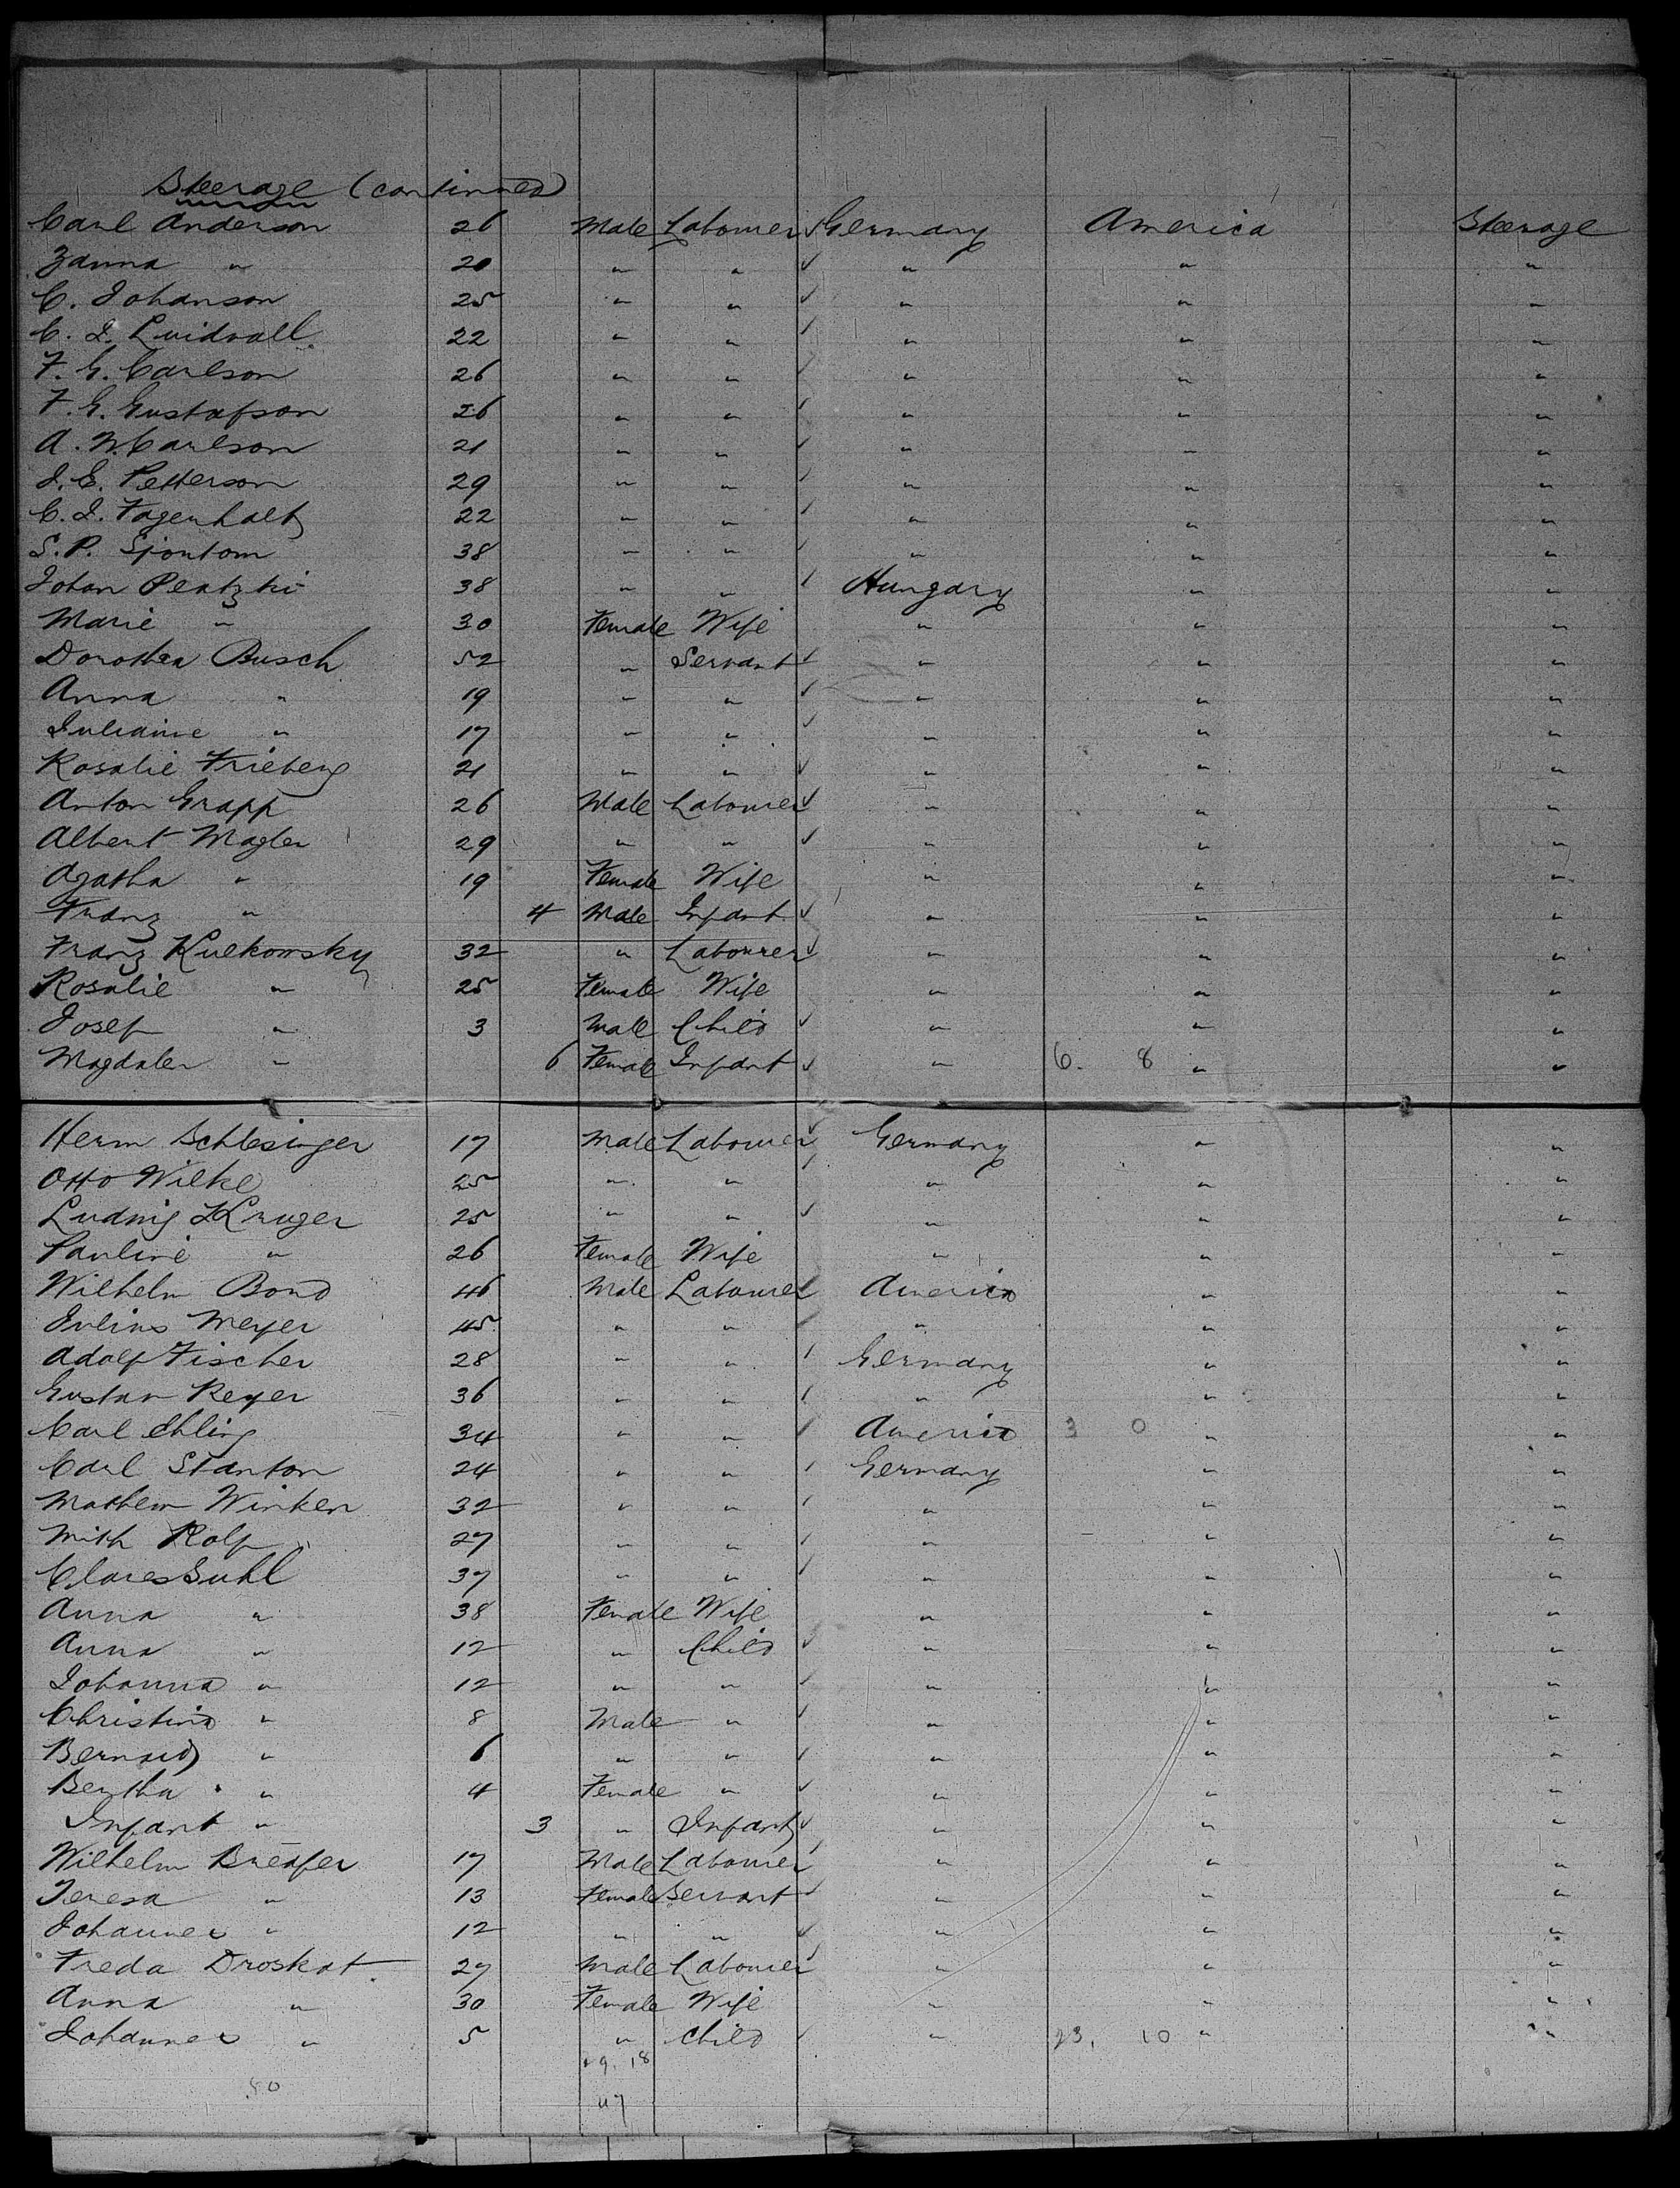 Steerage (continued)
Carl Anderson 26 Male Labourer ✓ Germany America Steerage
Zanna " 20 " " ✓ " " "
C. Johanson 25 " " ✓ " " "
C. J. Luidvall 22 " " ✓ " " "
F. G. Carlson 26 " " ✓ " " "
F. G. Gustafson 26 " " ✓ " " "
A. W. Carlson 21 " " ✓ " " "
J. E. Petterson 29 " " ✓ " " "
C. J. Fagenhalt 22 " " ✓ " " "
S. P. Sjontom 38 " " ✓ " " "
Johan Peatzki 38 " " ✓ Hungary " "
Marie " 30 Female Wife " " "
Dorothea Busch 52 " Servant ✓ " " "
Anna " 19 " " ✓ " " "
Julianne " 17 " " ✓ " " "
Rosalie Frieberg 21 " " ✓ " " "
Anton Grapp 26 Male Labourer ✓ " " "
Albert Magler 29 " " ✓ " " "
Agatha " 19 Female Wife " " "
Franz " 4 Male Infant ✓ " " "
Franz Kulkowsky 32 " Labourer ✓ " " "
Rosalie " 25 Female Wife " " "
Josef " 3 Male Child ✓ " " "
Magdalen " 6 Female Infant ✓ " 6. 8 " "
Herm Schlesinger 17 Male Labourer ✓ Germany " "
Otto Wilke 25 " " ✓ " " "
Ludwig Kruger 25 " " ✓ " " "
Pauline " 26 Female Wife " " "
Wilhelm Bond 46 Male Labourer ✓ America " "
Julius Meyer 45 " " ✓ " " "
Adolf Fischer 28 " " ✓ Germany " "
Gustav Reyer 36 " " ✓ " " "
Carl Ehling 34 " " ✓ America 3 0 " "
Carl Stanton 24 " " ✓ Germany " "
Mathew Winken 32 " " ✓ " " "
Mith Rolf 27 " " ✓ " " "
Clares Suhl 37 " " ✓ " " "
Anna " 38 Female Wife " " "
Anna " 12 " Child ✓ " " "
Johanna " 12 " " ✓ " " "
Christina " 8 Male " ✓ " " "
Bernard " 6 " " ✓ " " "
Bertha " 4 Female " ✓ " " "
Infant " 3 " Infant ✓ " " "
Wilhelm Breafer 17 Male Labourer ✓ " " "
Teresa " 13 Female Servant ✓ " " "
Johannes " 12 " " ✓ " " "
Freda Droskat 27 Male Labourer ✓ " " "
Anna " 30 Female Wife " " "
Johannes " 5 " Child ✓ " 23. 10 " "
29. 18
50
47